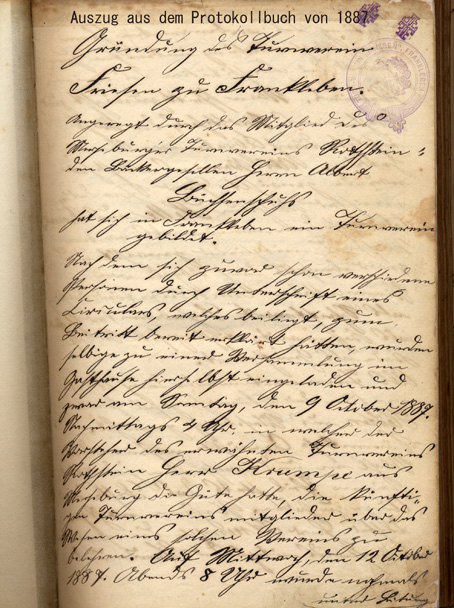 Auszug aus dem Protokollbuch von 1887
Gründung des Turnverein
Friesen zu Frankleben.
Angeregt durch das Mitglied des
Merseburger Turnvereins Rothstein,
den Bäckergesellen Herrn Albert
Büchsenschuß
hat sich in Frankleben ein Turnverein
gebildet.
Nach dem sich zuvor schon verschiedene
Personen durch Unterschrift eines
Circulars, welches beiliegt, zum
Beitritt bereit erklärt hatten, wurden
selbige zu einer Versammlung im
Gasthause hierselbst eingeladen und
zwar am Sonntag, den 9 October 1887.
Nachmittags 4 Uhr in welcher der
Vorsteher des erwähnten Turnvereins
Rothstein Herr Krumpe aus
Merseburg die Güte hatte, die künfti-
gen Turnvereins mitglieder über das
Wesen eines solchen Vereins zu
belehren. Mittwoch, den 12 October
1887. Abends 8 Uhr wurde nochmals
unter Leitung